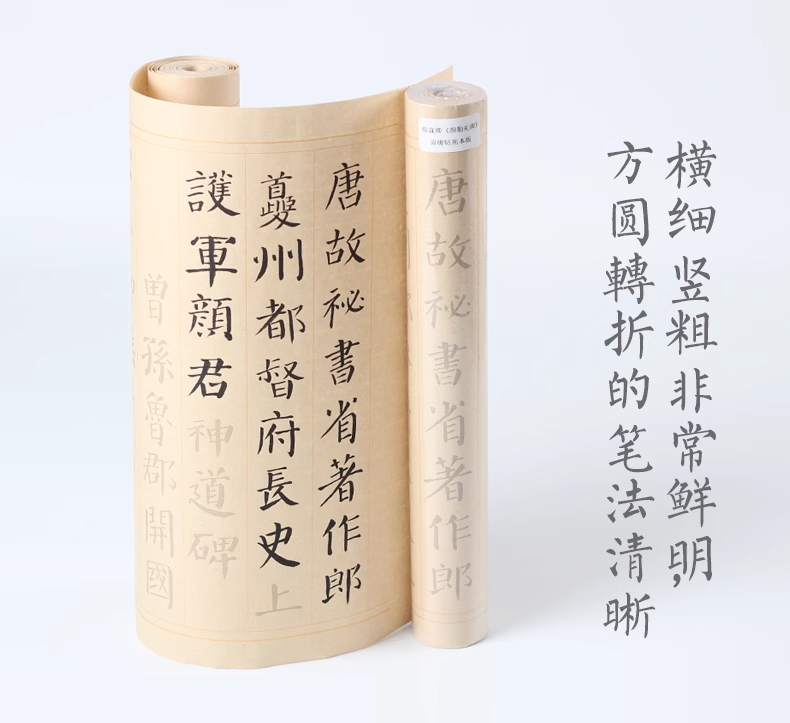 横细竖粗非常鲜明,
方圆轉折的笔法清晰
颜真卿《颜勤礼碑》
拓本
唐故祕書省著作郎
唐故祕書省著作郎
夔州都督府長史上
護軍顔君神道碑
曾孫魯郡開國